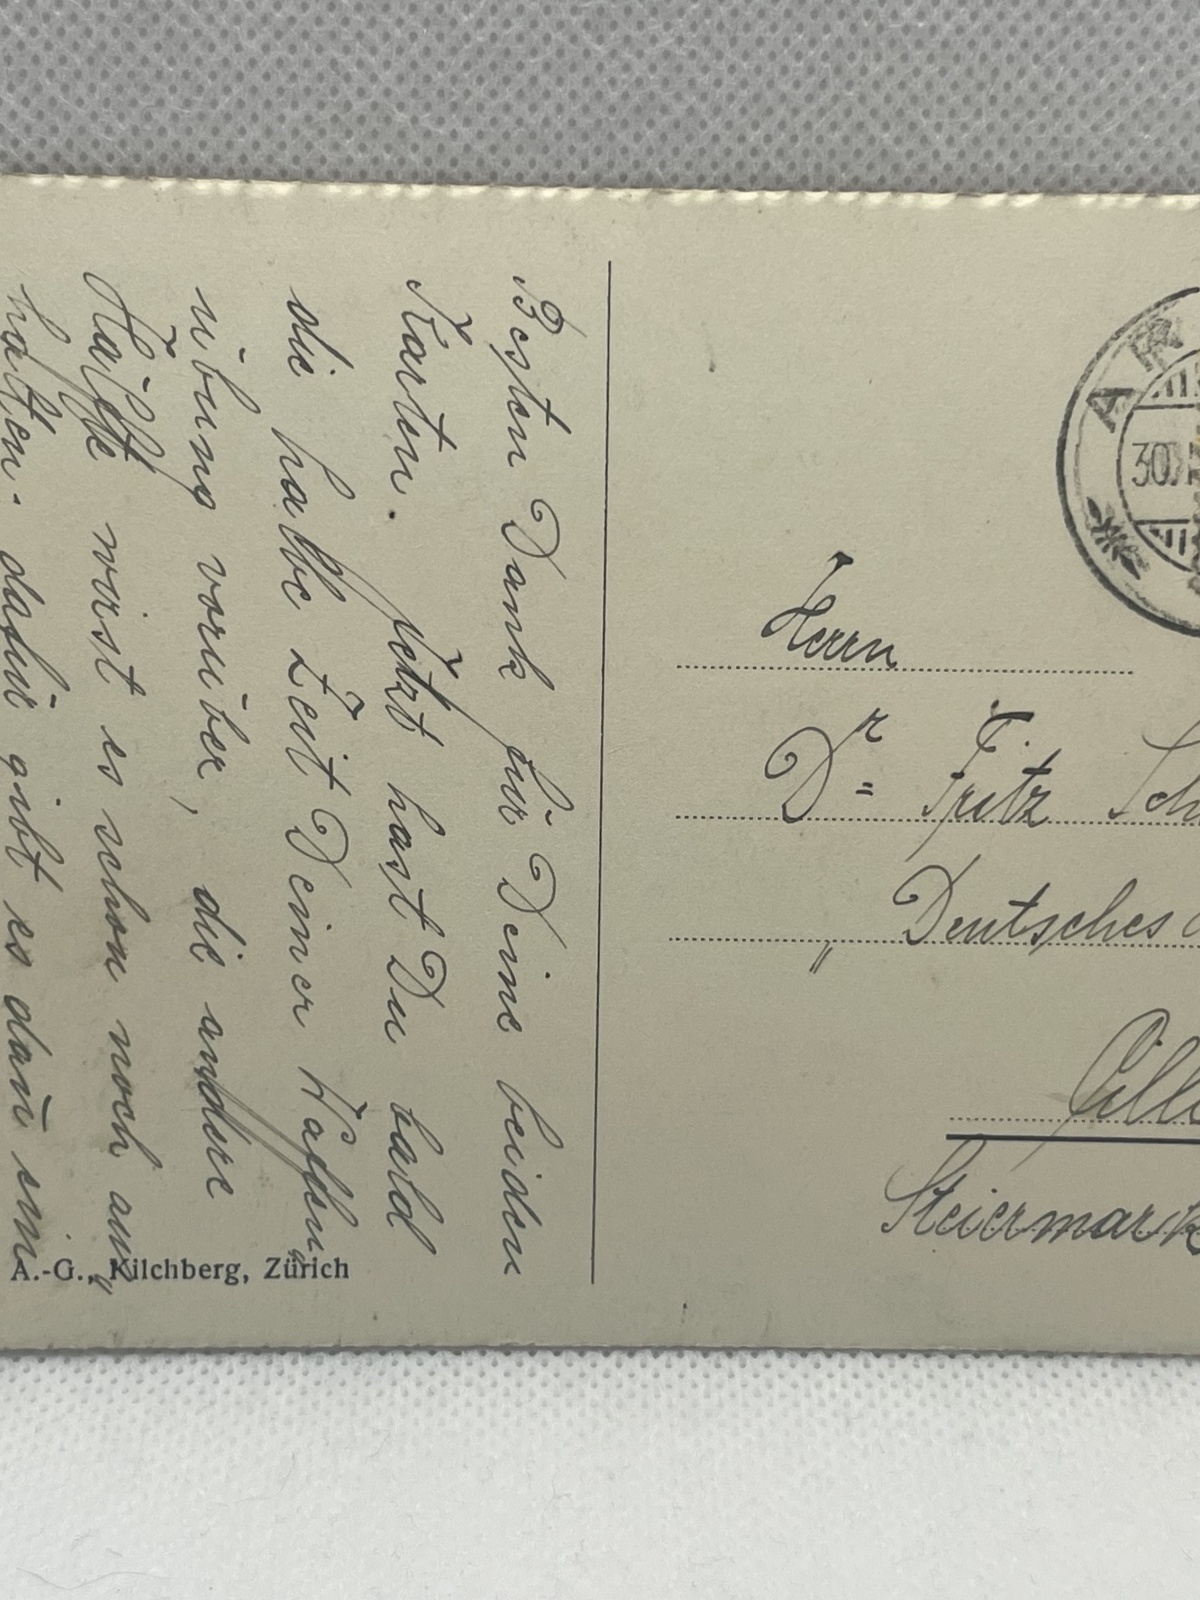 Besten Dank für Deine beiden
Karten. Jetzt hast Du bald
die halbe Zeit Deiner Waffen
übung vorüber, die andere
Hälfte wirst es schon noch aus
halten. dafür gibt es dan̄ ein
A.-G., Kilchberg, Zürich
30
Herrn
Dr= Fritz Sch
Deutsches
"
Cilli
Steiermark